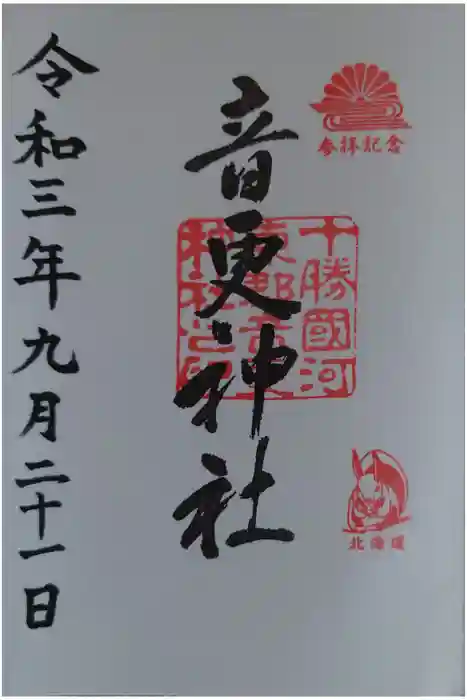 参拝記念
十勝國河
東郡音更
神社之印
音更神社
北海道
令和三年九月二十一日